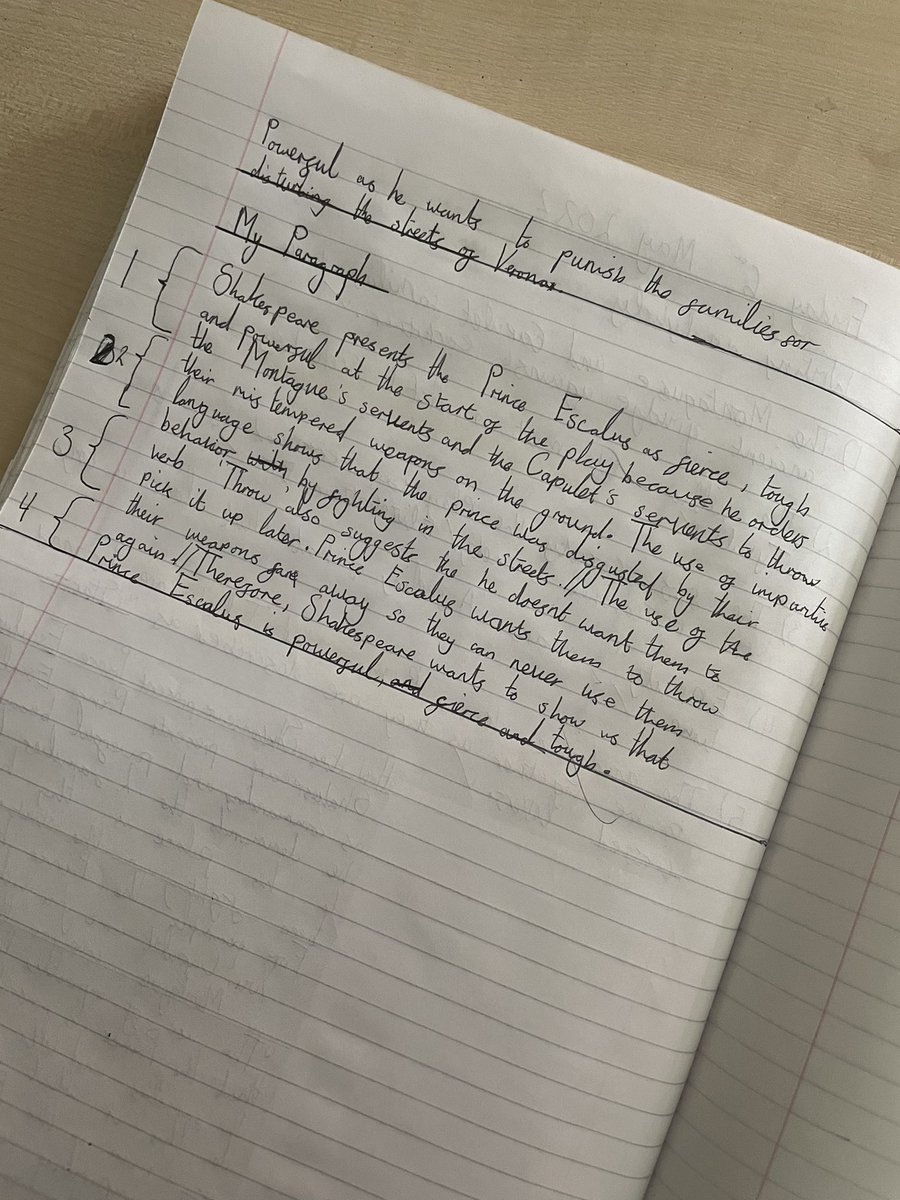 Powerful as he wants to punish the families for
disturbing the streets of Verona.
My Paragraph
1 Shakespeare presents the Prince Escalus as fierce, tough
and powerful at the start of the play because he orders
2 the Montague's servents and the Capulet's servents to throw
their mistempered weapons on the ground. The use of impartive
language shows that the prince was disgusted by their
3 behavior with by fighting in the streets.// The use of the
verb 'Throw', also suggests the he doesnt want them to
pick it up later. Prince Escalus wants them to throw
their weapons away so they can never use them
4 again.// Therefore, Shakespeare wants to show us that
Prince Escalus is powerful, and fierce and tough.